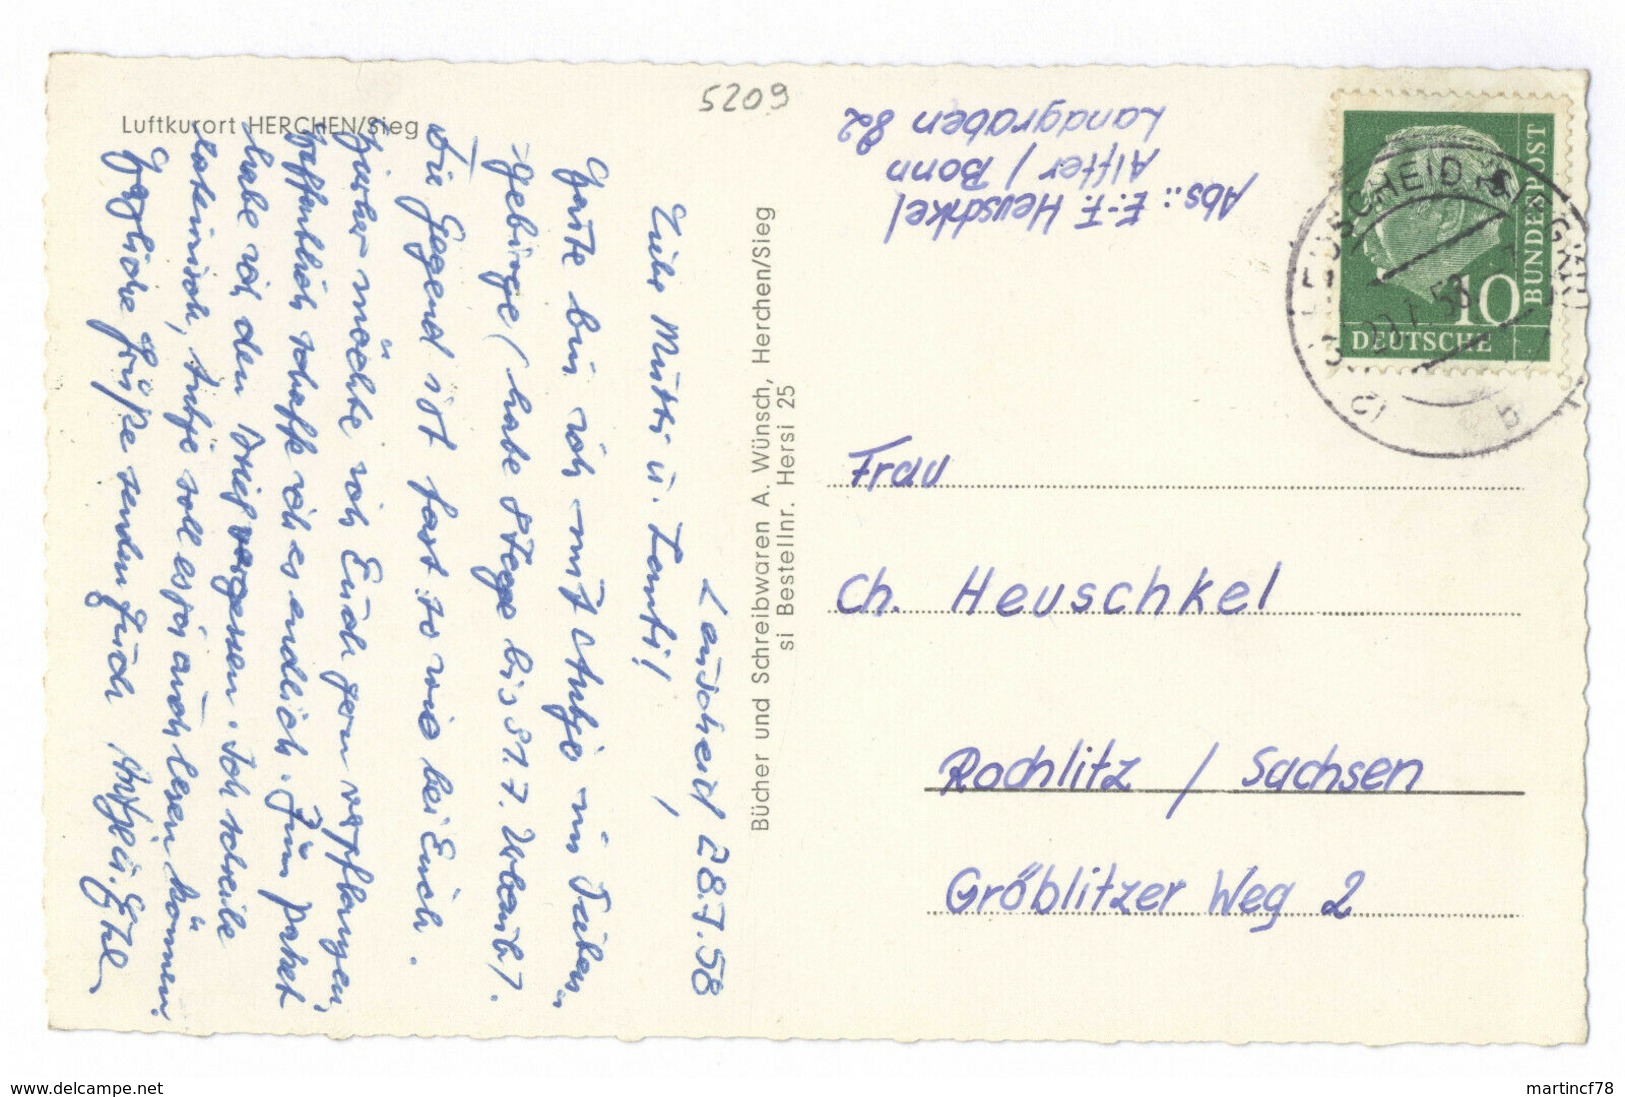 5209
Luftkurort HERCHEN/Sieg
Leuscheid, 28.7.58
Liebe Mutti u. Tanti!
Heute bin ich mit Antje im Sieben-
gebirge (habe 8 Tage bis 31.7. Urlaub).
Die Gegend ist fast so wie bei Euch.
Hierher möchte ich Euch gern verpflanzen,
hoffentlich schaffe ich es endlich. Zum Paket
habe ich den Brief vergessen. Ich schreibe
lateinisch, Antje soll es ja auch lesen können.
Herzliche Grüße senden Euch
Bücher und Schreibwaren A. Wünsch, Herchen/Sieg
si Bestellnr. Hersi 25
Abs.: E.-F. Heuschkel
Alfter / Bonn
Landgraben 82
DEUTSCHE
BUNDESPOST
10
LEUSCHEID (SIEGKR)
b
Frau
Ch. Heuschkel
Rochlitz / Sachsen
Gröblitzer Weg 2
delcampe.net
martincf78